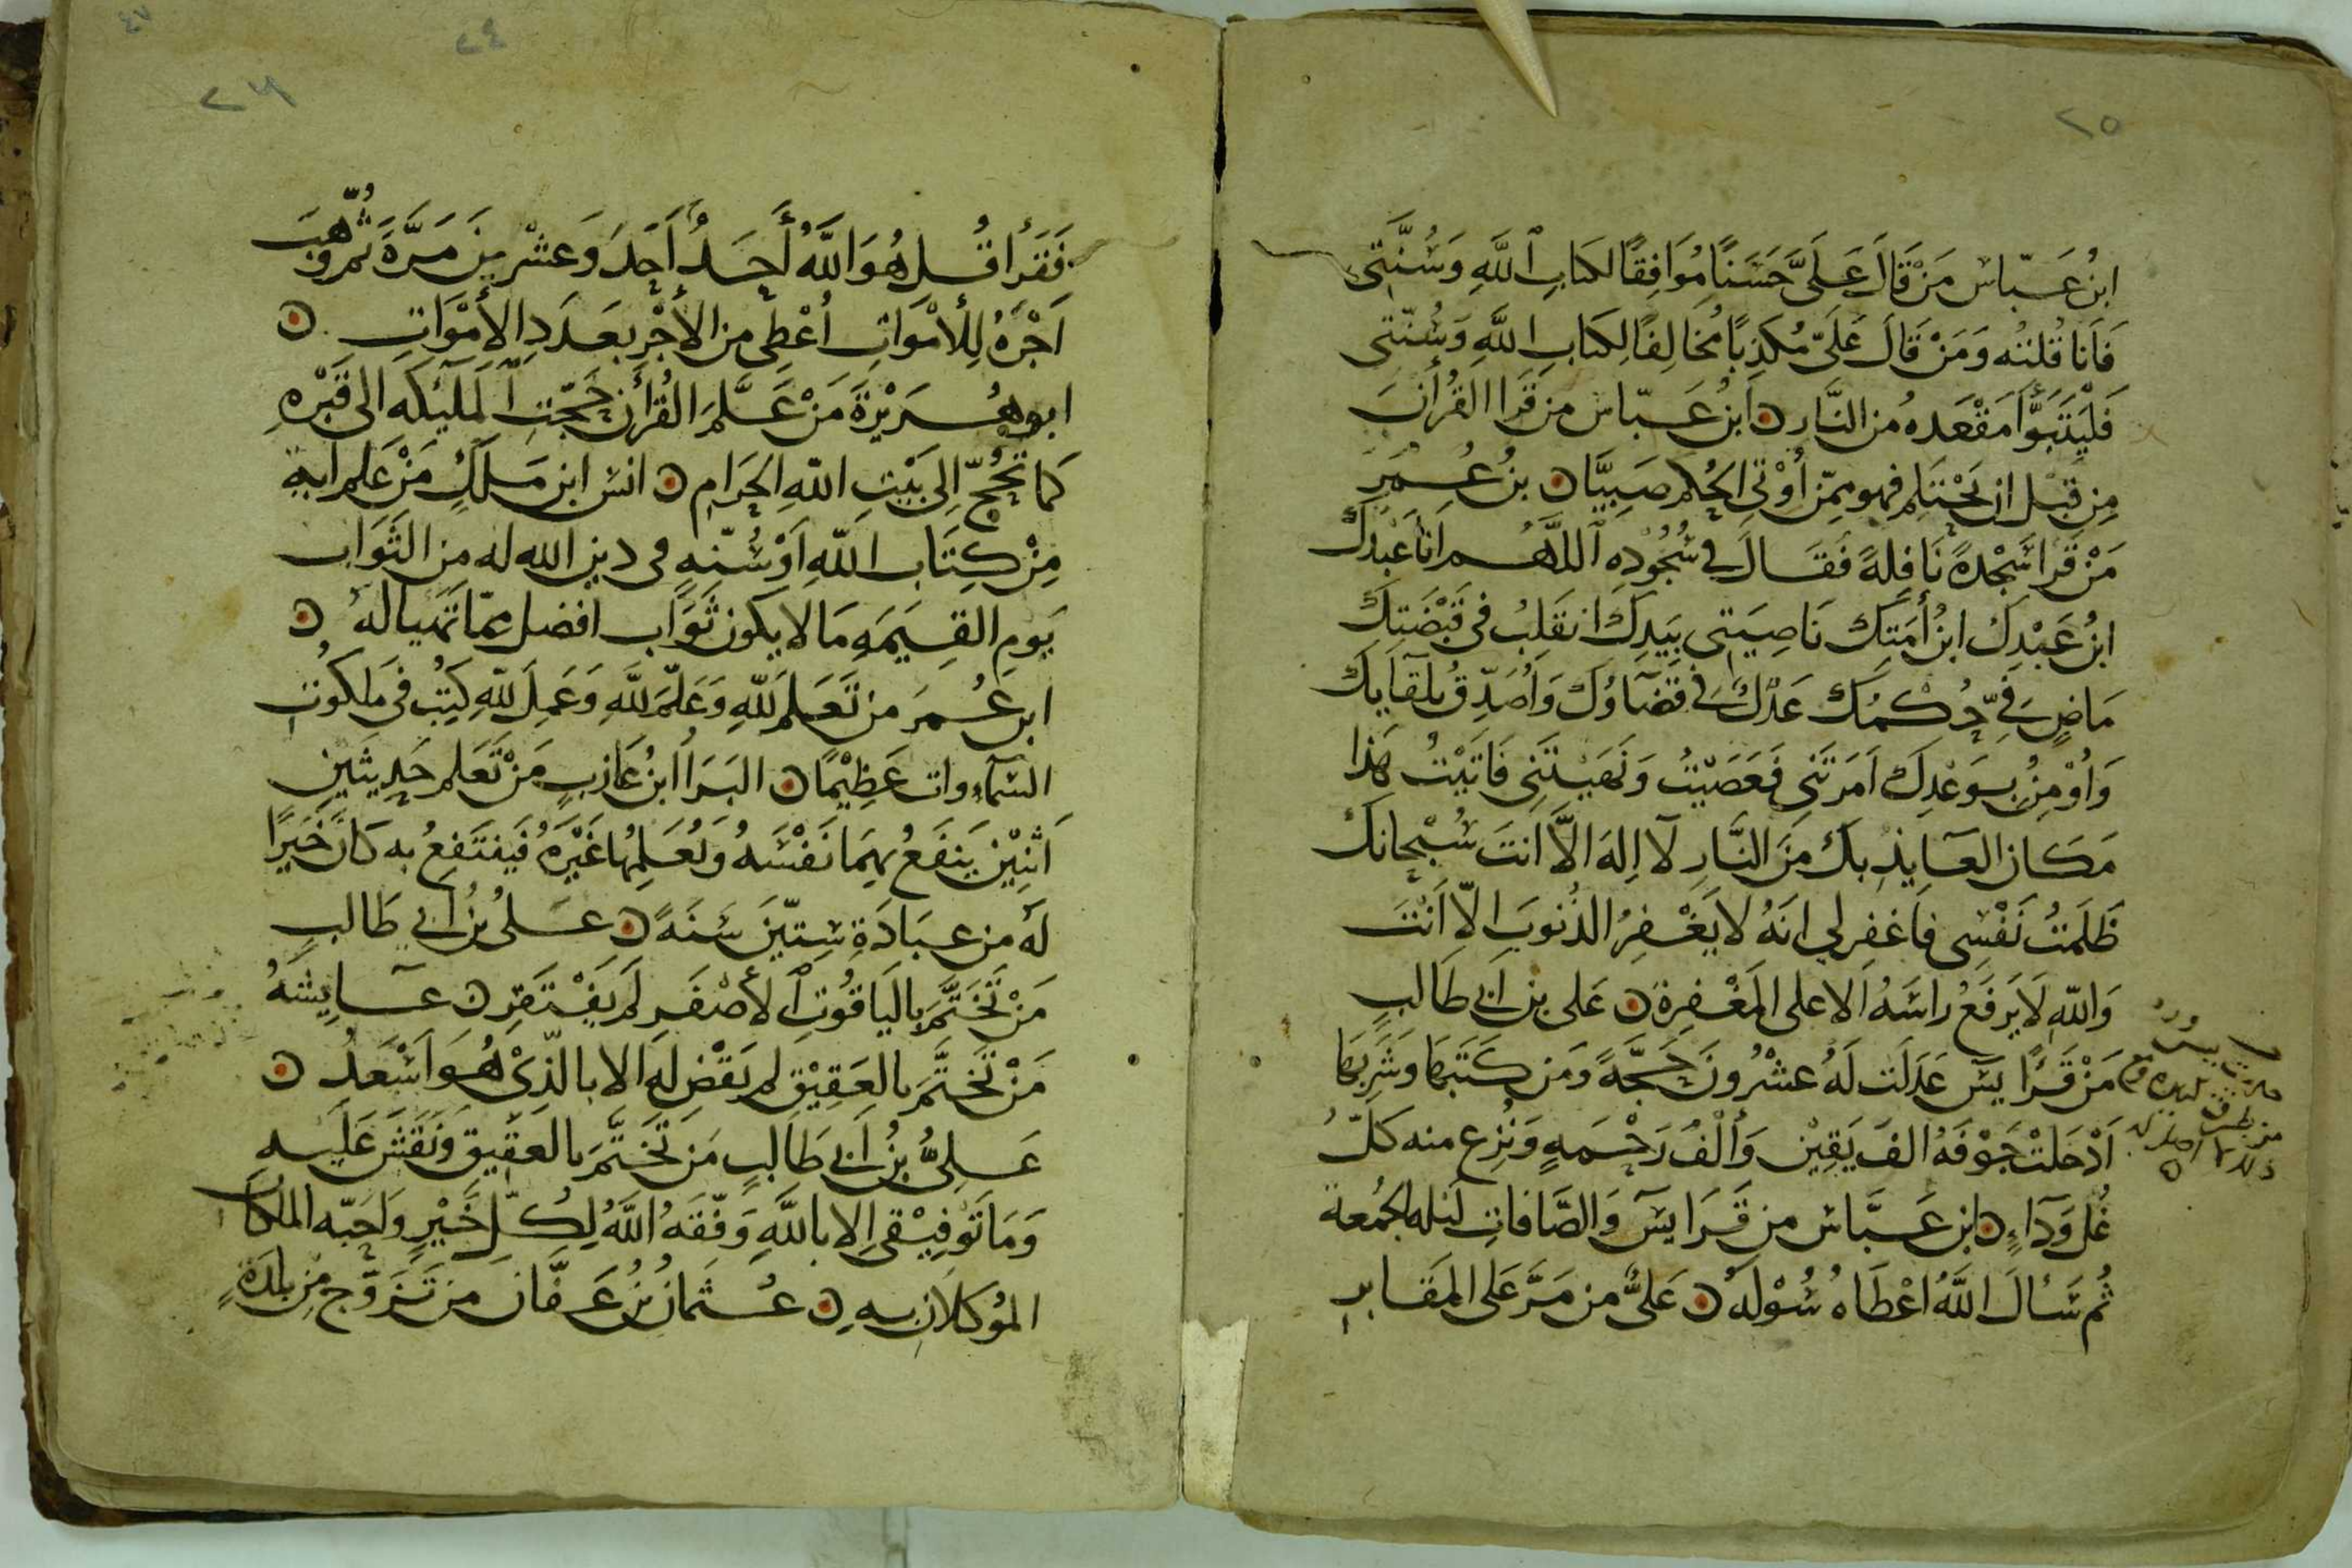 ٢٥
ابنُ عَبّاس مَنْ قَالَ عَلَىَّ حَسَنًا مُوَافِقًا لكتابِ اللَّهِ وَسُنَّتِى
فَاَنَا قُلتُه وَمَنْ قَالَ عَلَىّ مُكَذِبًا مُخَالِفًا لِكتَابِ اللَّهِ وَسُنّتى
فَلْيَتَبَوَّأ مَقْعَدهُ من النَّار ابنُ عَبّاس من قَرا القُرأنَ
مِن قَبْل ان يَحْتَلِم فهو مِمّن أُوْتِى الحُكم صَبِيًّا بنُ عُمَر
مَنْ قَرا سَجْدةً نَافِلةً فَقَالَ فى سُجُوْدِه اللَّهُم انا عَبْدكَ
ابنُ عَبْدِكَ ابنُ أَمَتِكَ نَاصِيَتِى بِيَدِكَ انقَلِبُ فى قَبْضَتِكَ
مَاضٍ فِىّ حُكْمُكَ عَدْلٌ فى قضَاؤكَ وَاُصَدِّقُ بلقَايكَ
وَاُوْمِنُ بوَعْدِكَ اَمَرتَنى فعَصَيْتُ وَنَهَيتَنى فَاَتَيْتُ هَذا
مَكَان العَايذِ بكَ مِنَ النَّارِ لَا اِلهَ الَّا انتَ سُبْحانكَ
ظَلَمتُ نَفْسِى فاغفِرلى انهُ لا يَغْفِرُ الذُنوبَ الّا اَنْتَ
وَاللّهِ لَا يَرفَعُ راسَهُ الا على المَغْفِرة عَلى بن ابى طَالبِ
مَنْ قَرَا يسَ عَدَلَت لَهُ عشْرُونَ حَجّةً وَمَن كَتَبَهَا وَشَرِبَهَا
اَدْخَلتْ جَوْفَهُ الفَ يَقِيْن وَألْفَ رَحْمَهٍ وَنُزِع منه كلُّ
غُل وَدَاءٍ ابن عَبَّاس من قَرَا يسَ وَالصَّافاتِ ليلهَ الجُمعة
ثُم سَالَ اللَّهَ اَعْطَاهُ سُوْلَهُ عَلىُّ من مَرَّ عَلى المَقابر
٤٧
٢٤
٢٦
فَقَرأ قُل هُوَ اللَّهُ أَحَدٌ اَحَدَ وَعشْرينَ مَرّةً ثُم وُهِّبَ
اَجْرَهُ لِلأمْوَاتِ اُعْطِى من الأَجْرِ بعَدَدِ الأمْوَاتِ
ابو هُرَيْرَةَ مَنْ عَلَّمَ القُرْأن حَجّتِ المَلَيكَه الى قَبْرِهِ
كَما تَحُجّ اِلى بَيْتِ اللّهِ الحَرَام انس ابن مَلكٍ مَنْ عَلِم اية
مِنْ كِتَاب اللّهِ اَوْ سُنّهٍ فى دين الله له من الثوَاب
يَومِ القِيَمَهِ مَا لا يكون ثَوَاب افضل مِمّا تَهيا لهُ
ابن عُمَرَ من تَعَلم للّهِ وَعَلّم للَّهِ وَعَمِلَ للّهِ كُتِبُ فى ملكُوت
السَّمَاوات عَظِيْمًا البَرَا ابنُ عَازبٍ مَنْ تَعَلم حَدِيثَين
اَثنِيْن يَنفَعُ بهِمَا نَفْسَهُ وَيُعَلِمُها غَيْرَهُ فَيَنتَفِعُ به كَانَ خَيرًا
لَه من عبَادَةِ سِتّيَن سَنَهً عَلىُ بنُ ابى طَالبٍ
مَنْ تَخَتَّمَ باليَاقُوتِ الأَصْفَر لَم يَفْتَقِر عَايشَهُ
مَنْ تَخَتَّمَ بالعَقِيْق لم يقْضِ لَهِ الا بالّذِىْ هُوَ اَسْعَدُ
عَلِىُّ بنُ اَبى طَالِبٍ مَن تَخَتَّمَ بالعَقِيق وَنَقَشَ عَلَيه
وَمَا تَوْفِيْقى اِلا باللَّهِ وَفّقَهُ اللَّهُ لِكُلّ خَيْرٍ وَاَحَبّه الملكَان
المُوكلَان به عُثمانُ بنُ عَفَّانَ مَن تَزَوَّج مِن بلدَةٍ